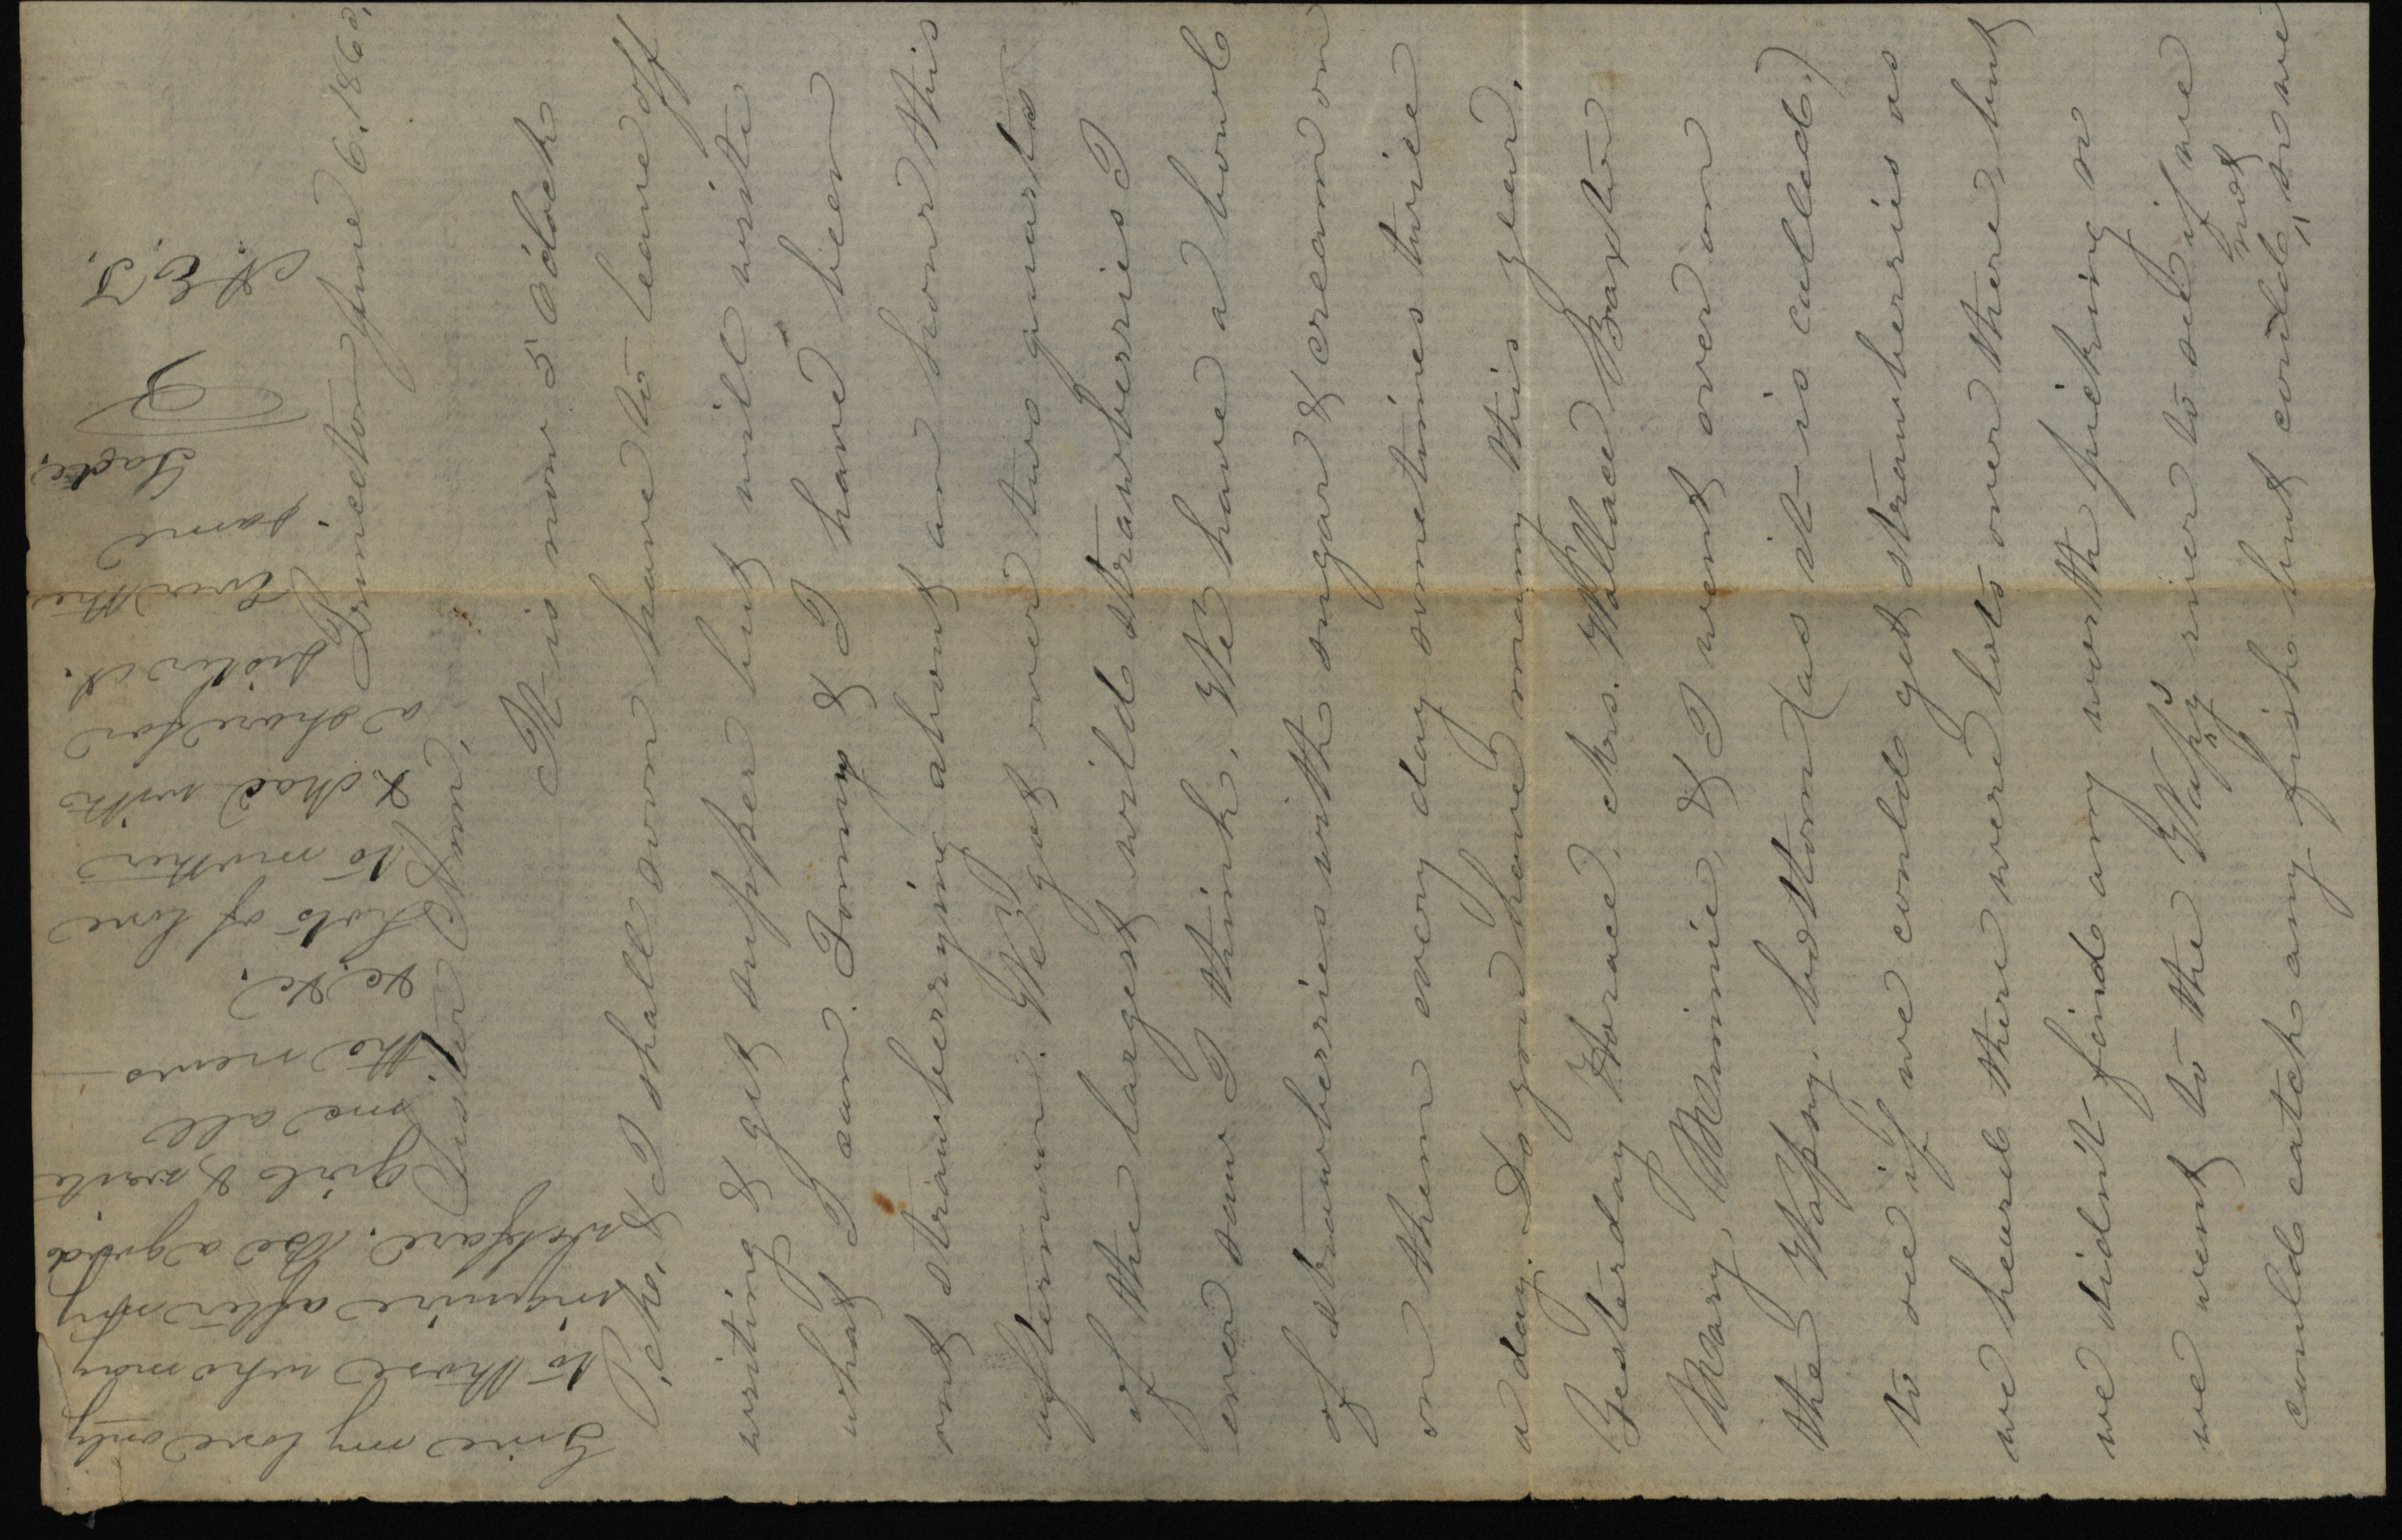 Princeton June 6, 1860,
Sister Nfum,
It is now 5 Oclock
P,ck, & I shall soon have to leave off
writing & get supper but will write
what I can. Tommy & I have been
out strawberrying about an hour this
afternoon. We got over two quarts
of the largest wild strawberries I
ever saw I think, We have a bowl
of strawberries with sugar & cream on
on them every day sometimes twice
a day. Do you have many this year.
Yesterday Horace, Mrs. Wallace Baxter
Mary, Minnie, & I went over on
the Wapsy, bottom (as it is called,)
to see if we could get strawberries as
we heard there were lots over there, but
we didn't find any worth picking so
we went to the Wapsy's river to see if we
could catch any fish but could not, so we
Give my love only
to those who may
inquire after my
welfare. Be a good
girl & write
me all
the news
&c. &c.
Lots of love
to mother
& Chad with
a share for
sister A.
Ever the
same
Sade,
N. E. T.